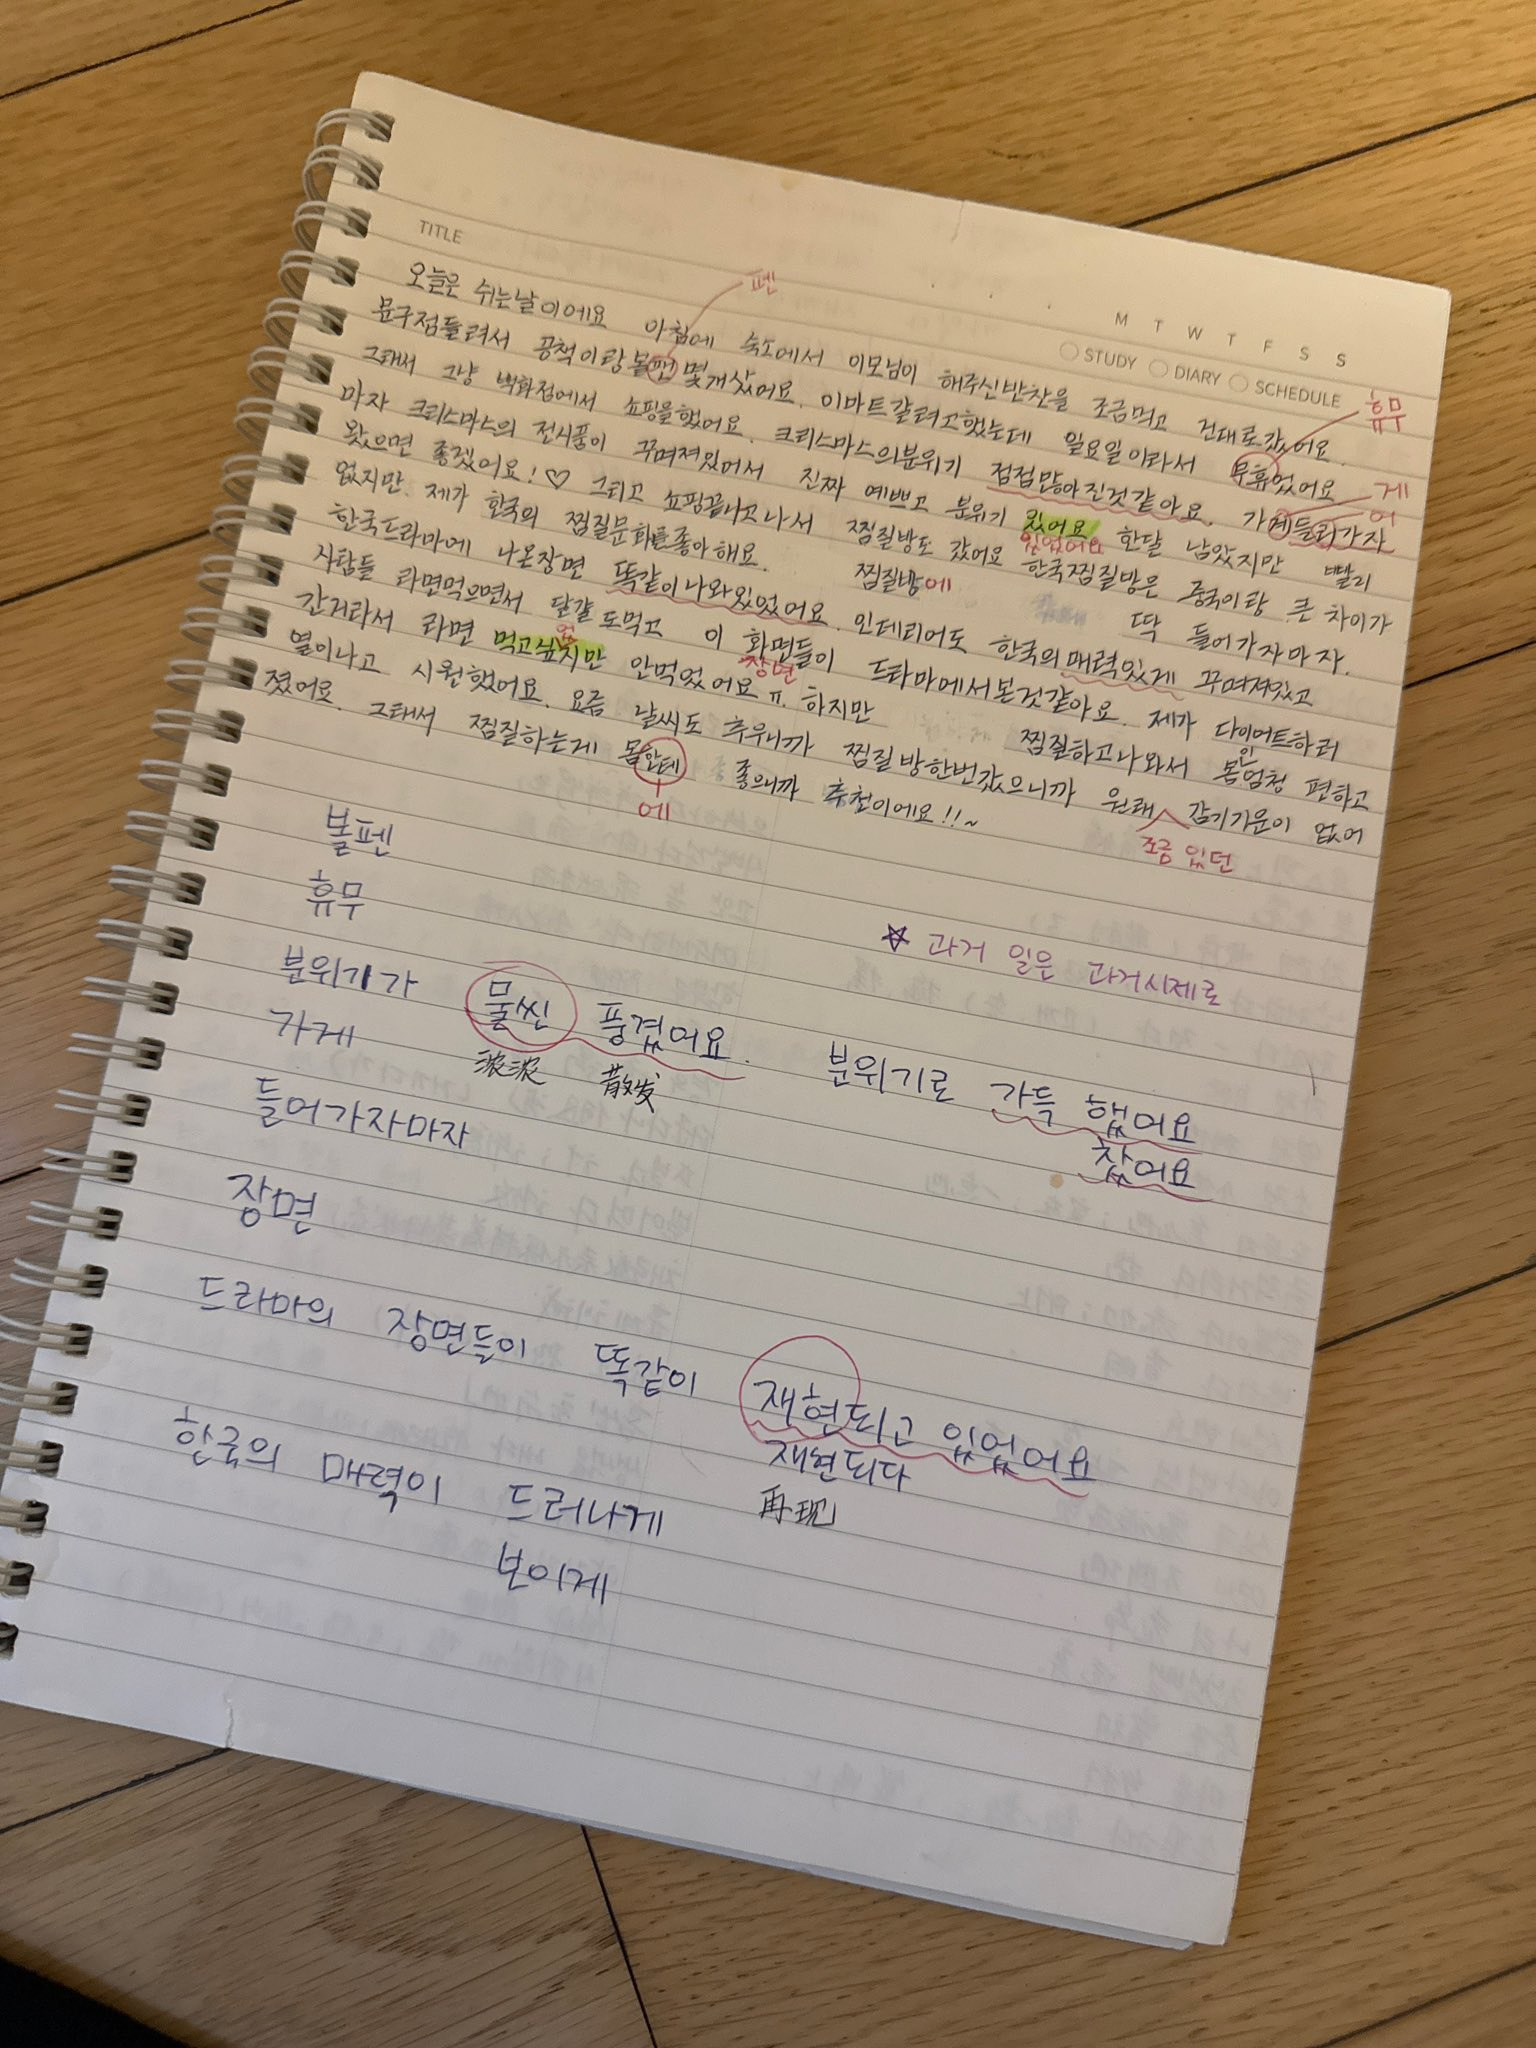 TITLE
M T W T F S S
STUDY DIARY SCHEDULE
펜
휴무
오늘은 쉬는날이에요 아침에 숙소에서 이모님이 해주신반찬을 조금먹고 건대로갔어요.
문구점들려서 공책이랑볼펀 몇개샀어요. 이마트갈려고했는데 일요일이라서 무휴었어요
그래서 그냥 백화점에서 쇼핑을했어요. 크리스마스의분위기 점점많아진것같아요. 가게들리가자
게
어
마자 크리스마스의 전시품이 꾸며져있어서 진짜 예쁘고 분위기 있어요 한달 남았지만 빨리
있었어요
왔으면 좋겠어요!♡ 그리고 쇼핑끝나고나서 찜질방도 갔어요 한국찜질방은 중국이랑 큰 차이가
없지만. 제가 한국의 찜질문화를좋아해요. 찜질방에 딱 들어가자마자.
한국드라마에 나온장면 똑같이나와있었어요. 인테리어도 한국의매력있게 꾸며져있고
사람들 라면먹으면서 달걀도먹고 이 화면들이 드라마에서본것같아요. 제가 다이어트하러
장면
간거라서 라면 먹고싶지만 안먹었어요ㅠ. 하지만 찜질하고나와서 몸엄청 편하고
열이나고 시원했어요. 요즘 날씨도 추우니까 찜질방한번갔으니까 원래 감기기운이 없어
조금 있던
졌어요. 그래서 찜질하는게 몸안테 좋으니까 추천이에요!!~
에
볼펜
휴무
☆ 과거 일은 과거시제로
분위기가 물씬 풍겼어요. 분위기로 가득 했어요
浓浓 散发 찼어요
가게
들어가자마자
장면
드라마의 장면들이 똑같이 재현되고 있었어요
재현되다
再现
한국의 매력이 드러나게
보이게